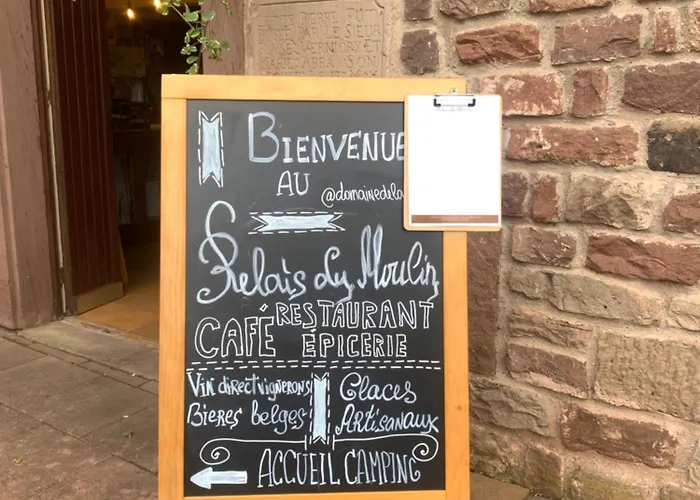 BIENVENUE
AU
@domainedela
Relais du Moulin
RESTAURANT
CAFÉ ÉPICERIE
Vin direct vignerons
Bieres belges
Glaces
Artisanaux
ACCUEIL CAMPING